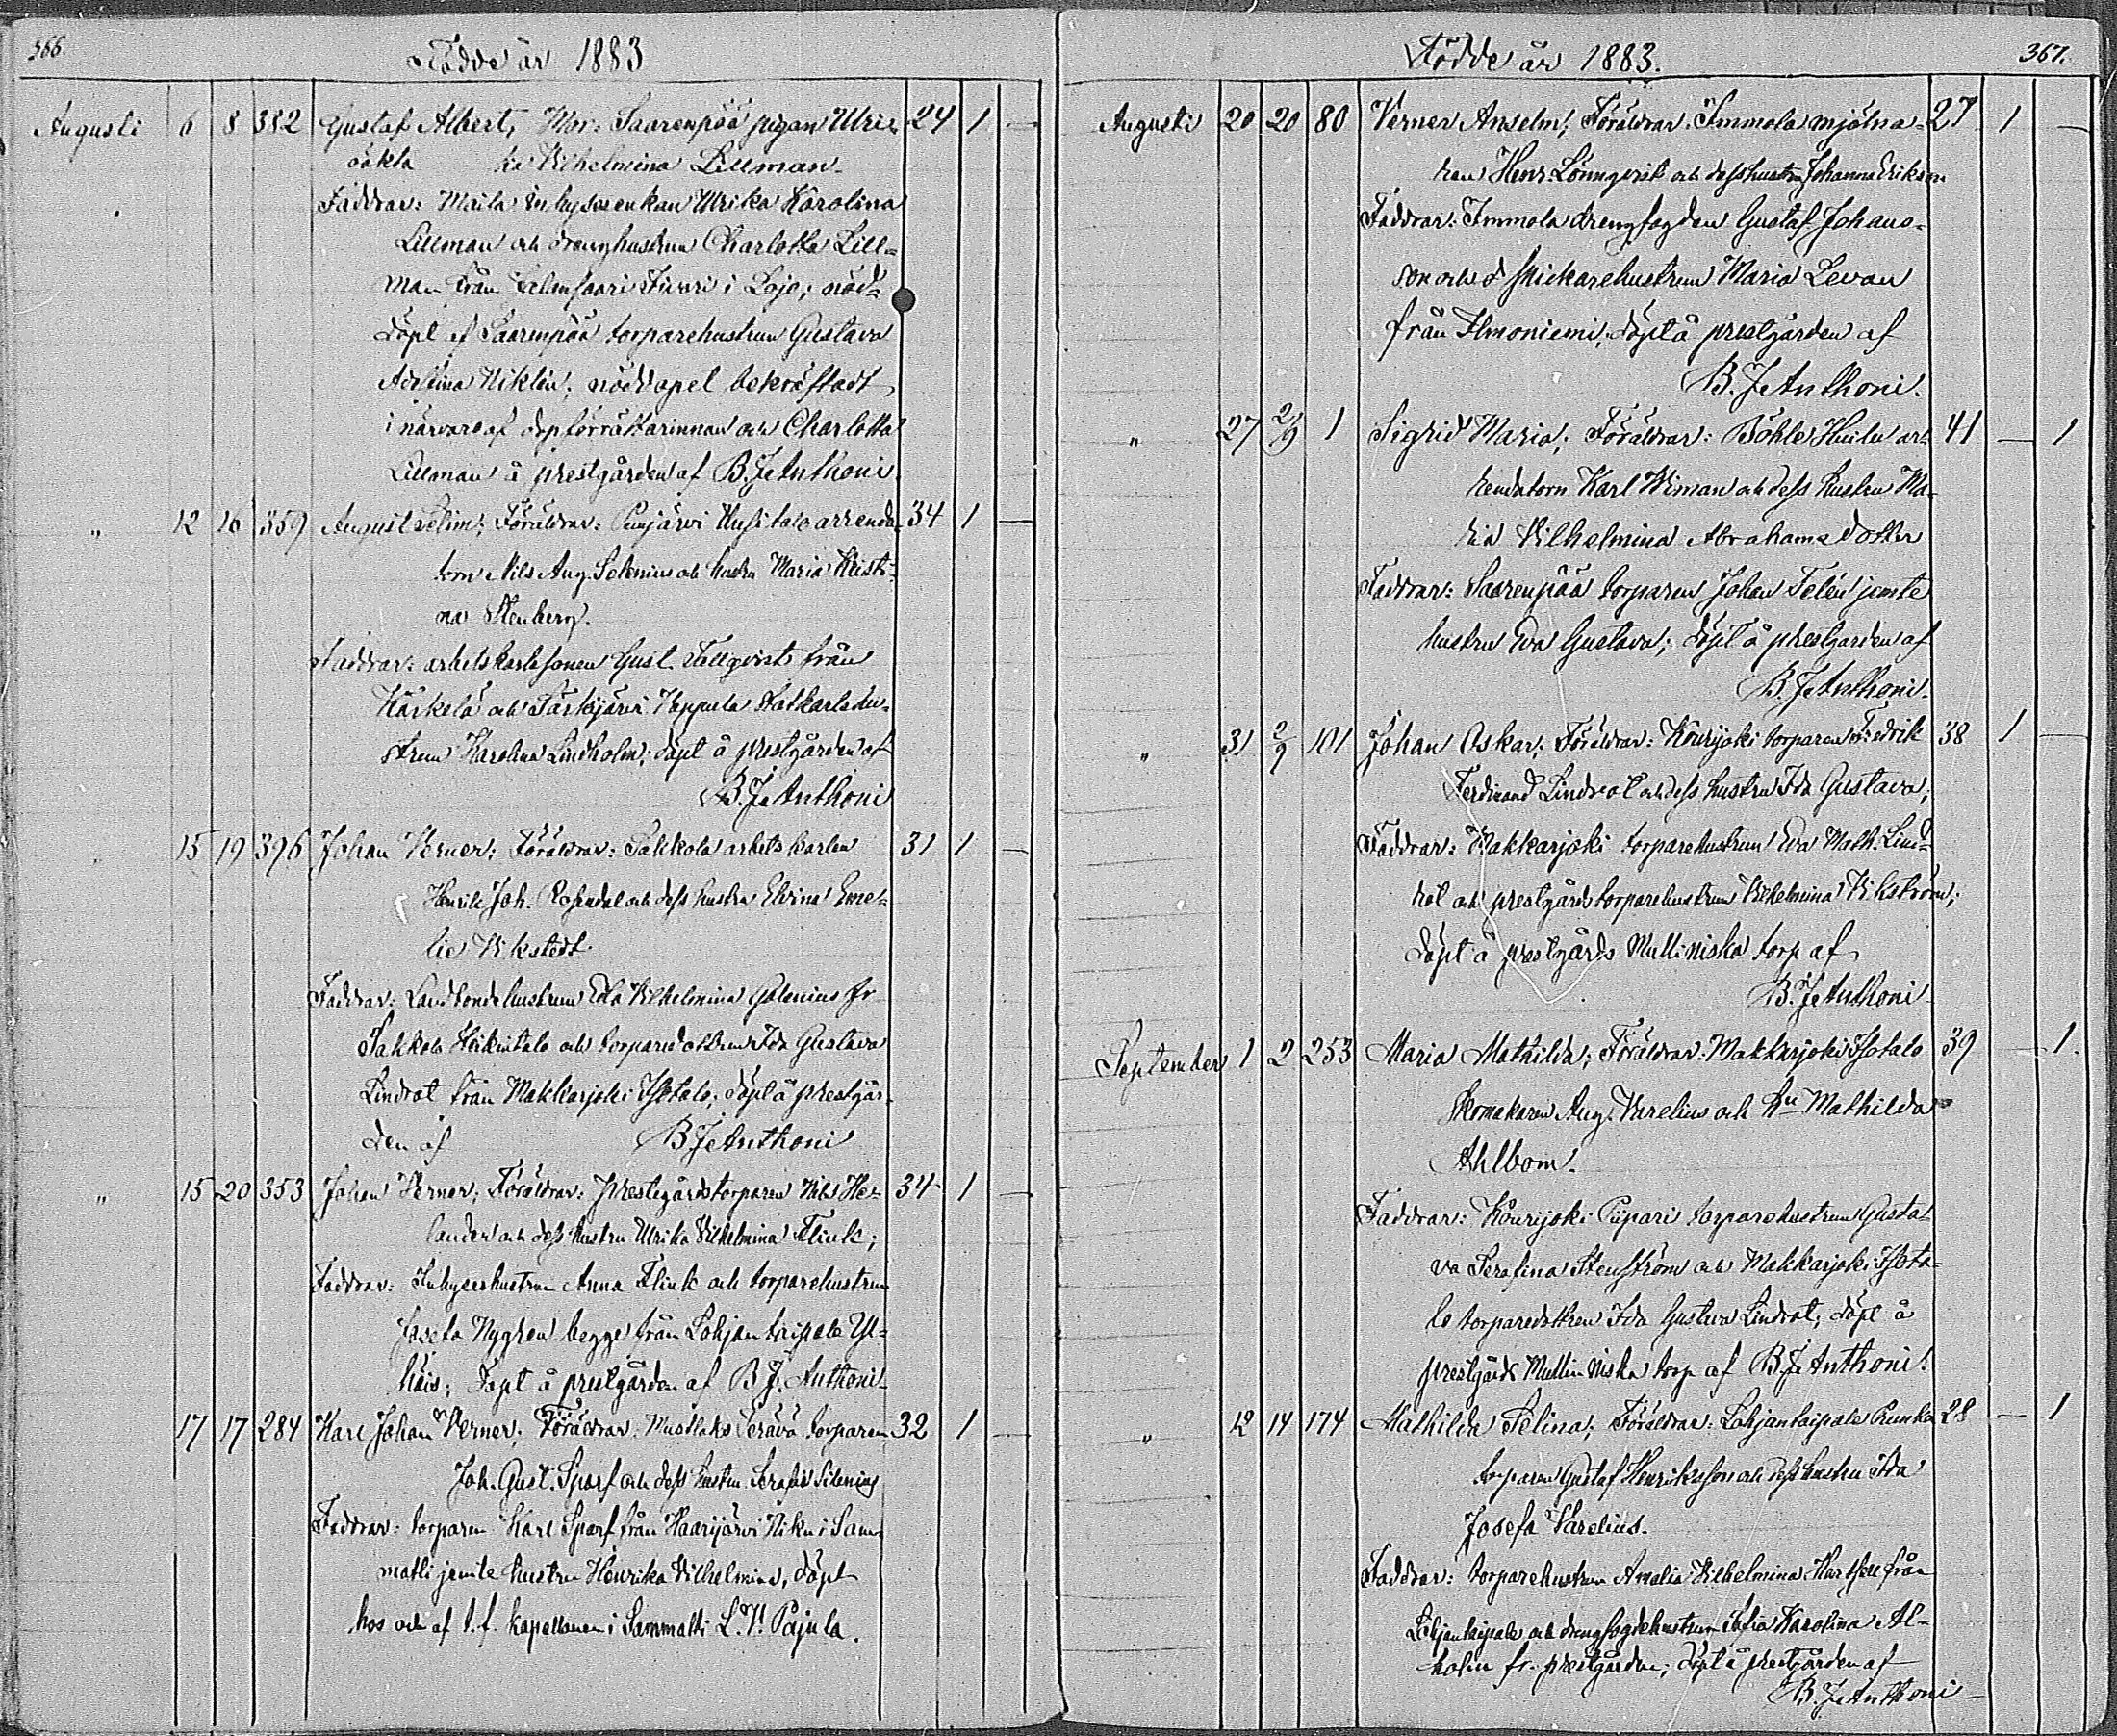 366.
Födde år 1883
Augusti 6 8 382 Gustaf Albert, Mor: Saarenpää pigan Ulri- 24 1 —
oäkta ka Vilhelmina Lillman.
Faddrar: Maila inhysesenkan Ulrika Karolina
Lillman och drenghustrun Charlotta Lill-
man från i Lojo; nöd-
döpt af Saarenpää torparehustrun Gustava
Adolfina Niklén; nöddopet bekräftadt
i närvaro af dopförrättarinnan och Charlotta
Lillman å prestgården af B. F. Anthoni.
„ 12 16 359 August Selim; Föräldrar: Punjärvi arrenda- 34 1 —
torn Nils Aug. Selenius och hustru Maria Kristi-
na Stenberg.
Faddrar: arbetskarlssonen Gust. Tellqvist från
Kärkelä och Särkijärvi Heppula Statkarlshu-
strun Karolina Lindholm; döpt å prestgården af
B. F. Anthoni
„ 15 19 396 Johan Verner; Föräldrar: Sakkola arbetskarlen 31 1 —
Henrik Joh. Rosendal och dess hustru Elvina Eme-
lie Vikstedt.
Faddrar: Landbondehustrun Eda Vilhelmina Galenius fr
Sakkola Heikintalo och torparedottren Ida Gustava
Lindrot från Makkarjoki Isotalo; döpt å prestgår-
den af B. F. Anthoni
„ 15 20 353 Johan Verner; Föräldrar: Prestegårdstorparen Nils He- 34 1 —
lander och dess hustru Ulrika Vilhelmina Flink;
Faddrar: Inhyseshustrun Anna Flink och torparehustrun
Josefa Nygren begge från Lohjantaipale Yl-
häis; döpt å prestgården af B. F. Anthoni
17 17 284 Karl Johan Verner; Föräldrar: Mustlaks Terävä torparen 32 1 —
Joh. Gust. Sparf och dess hustru Serafia Silenius
Faddrar: torparen Karl Sparf från Haarijärvi Niku i Sam-
matti jemte hustru Henrika Vilhelmina, döpt
hos och af t. f. kapellanen i Sammatti L. V. Pajula.
Födde år 1883.
367.
Augusti 20 20 80 Verner Anselm; Föräldrar: Immola mjölna- 27 1 —
ren Henr. Lönnqvist och dess hustru Johanna Erikson
Faddrar: Immola drengfogden Gustaf Johans-
son och snickarehustrun Maria Levan
från Ilmoniemi; döpt å prestgården af
B. F. Anthoni.
„ 27 2/9 1 Sigrid Maria; Föräldrar: Böhle Huilu ar- 41 — 1
rendatorn Karl Wiman och dess hustru Ma-
ria Vilhelmina Abrahamsdotter
Faddrar: Saarenpää torparen Johan Felén jemte
hustru Eva Gustava; döpt å prestgården af
B. F. Anthoni.
„ 31 2/9 101 Johan Oskar; Föräldrar: Kourjoki torparen Fredrik 38 1 —
Ferdinand Lindrot och dess hustru Ida Gustava;
Faddrar: Makkarjoki torparehustrun Eva Math. Lind-
rot och prestgårds torparehustrun Vilhelmina Vikström;
döpt å prestgårds Mullinniska torp af
B. F. Anthoni
September 1 2 253 Maria Mathilda; Föräldrar: Makkarjoki Isotalo 39 — 1.
skomakaren Aug. Varelius och Hu Mathilda
Ahlbom.
Faddrar: Kourijoki Piipari torparehustrun Gusta-
va Serafina Stenström och Makkarjoki Isota-
lo torparedottren Ida Gustava Lindrot; döpt å
prestgårds Mullinniska torp af B. F. Anthoni.
„ 12 14 174 Mathilda Selina; Föräldrar: Lohjantaipale Ruuka 28 — 1
torparen Gustaf Henriksson och dess hustru Ida
Josefa Varelius.
Faddrar: torparehustrun Amalia Vilhelmina från
Lohjantaipale och drengfogdehustrun Sofia Karolina Al-
holm fr. prestgården; döpt å prestgården af
B. F. Anthoni